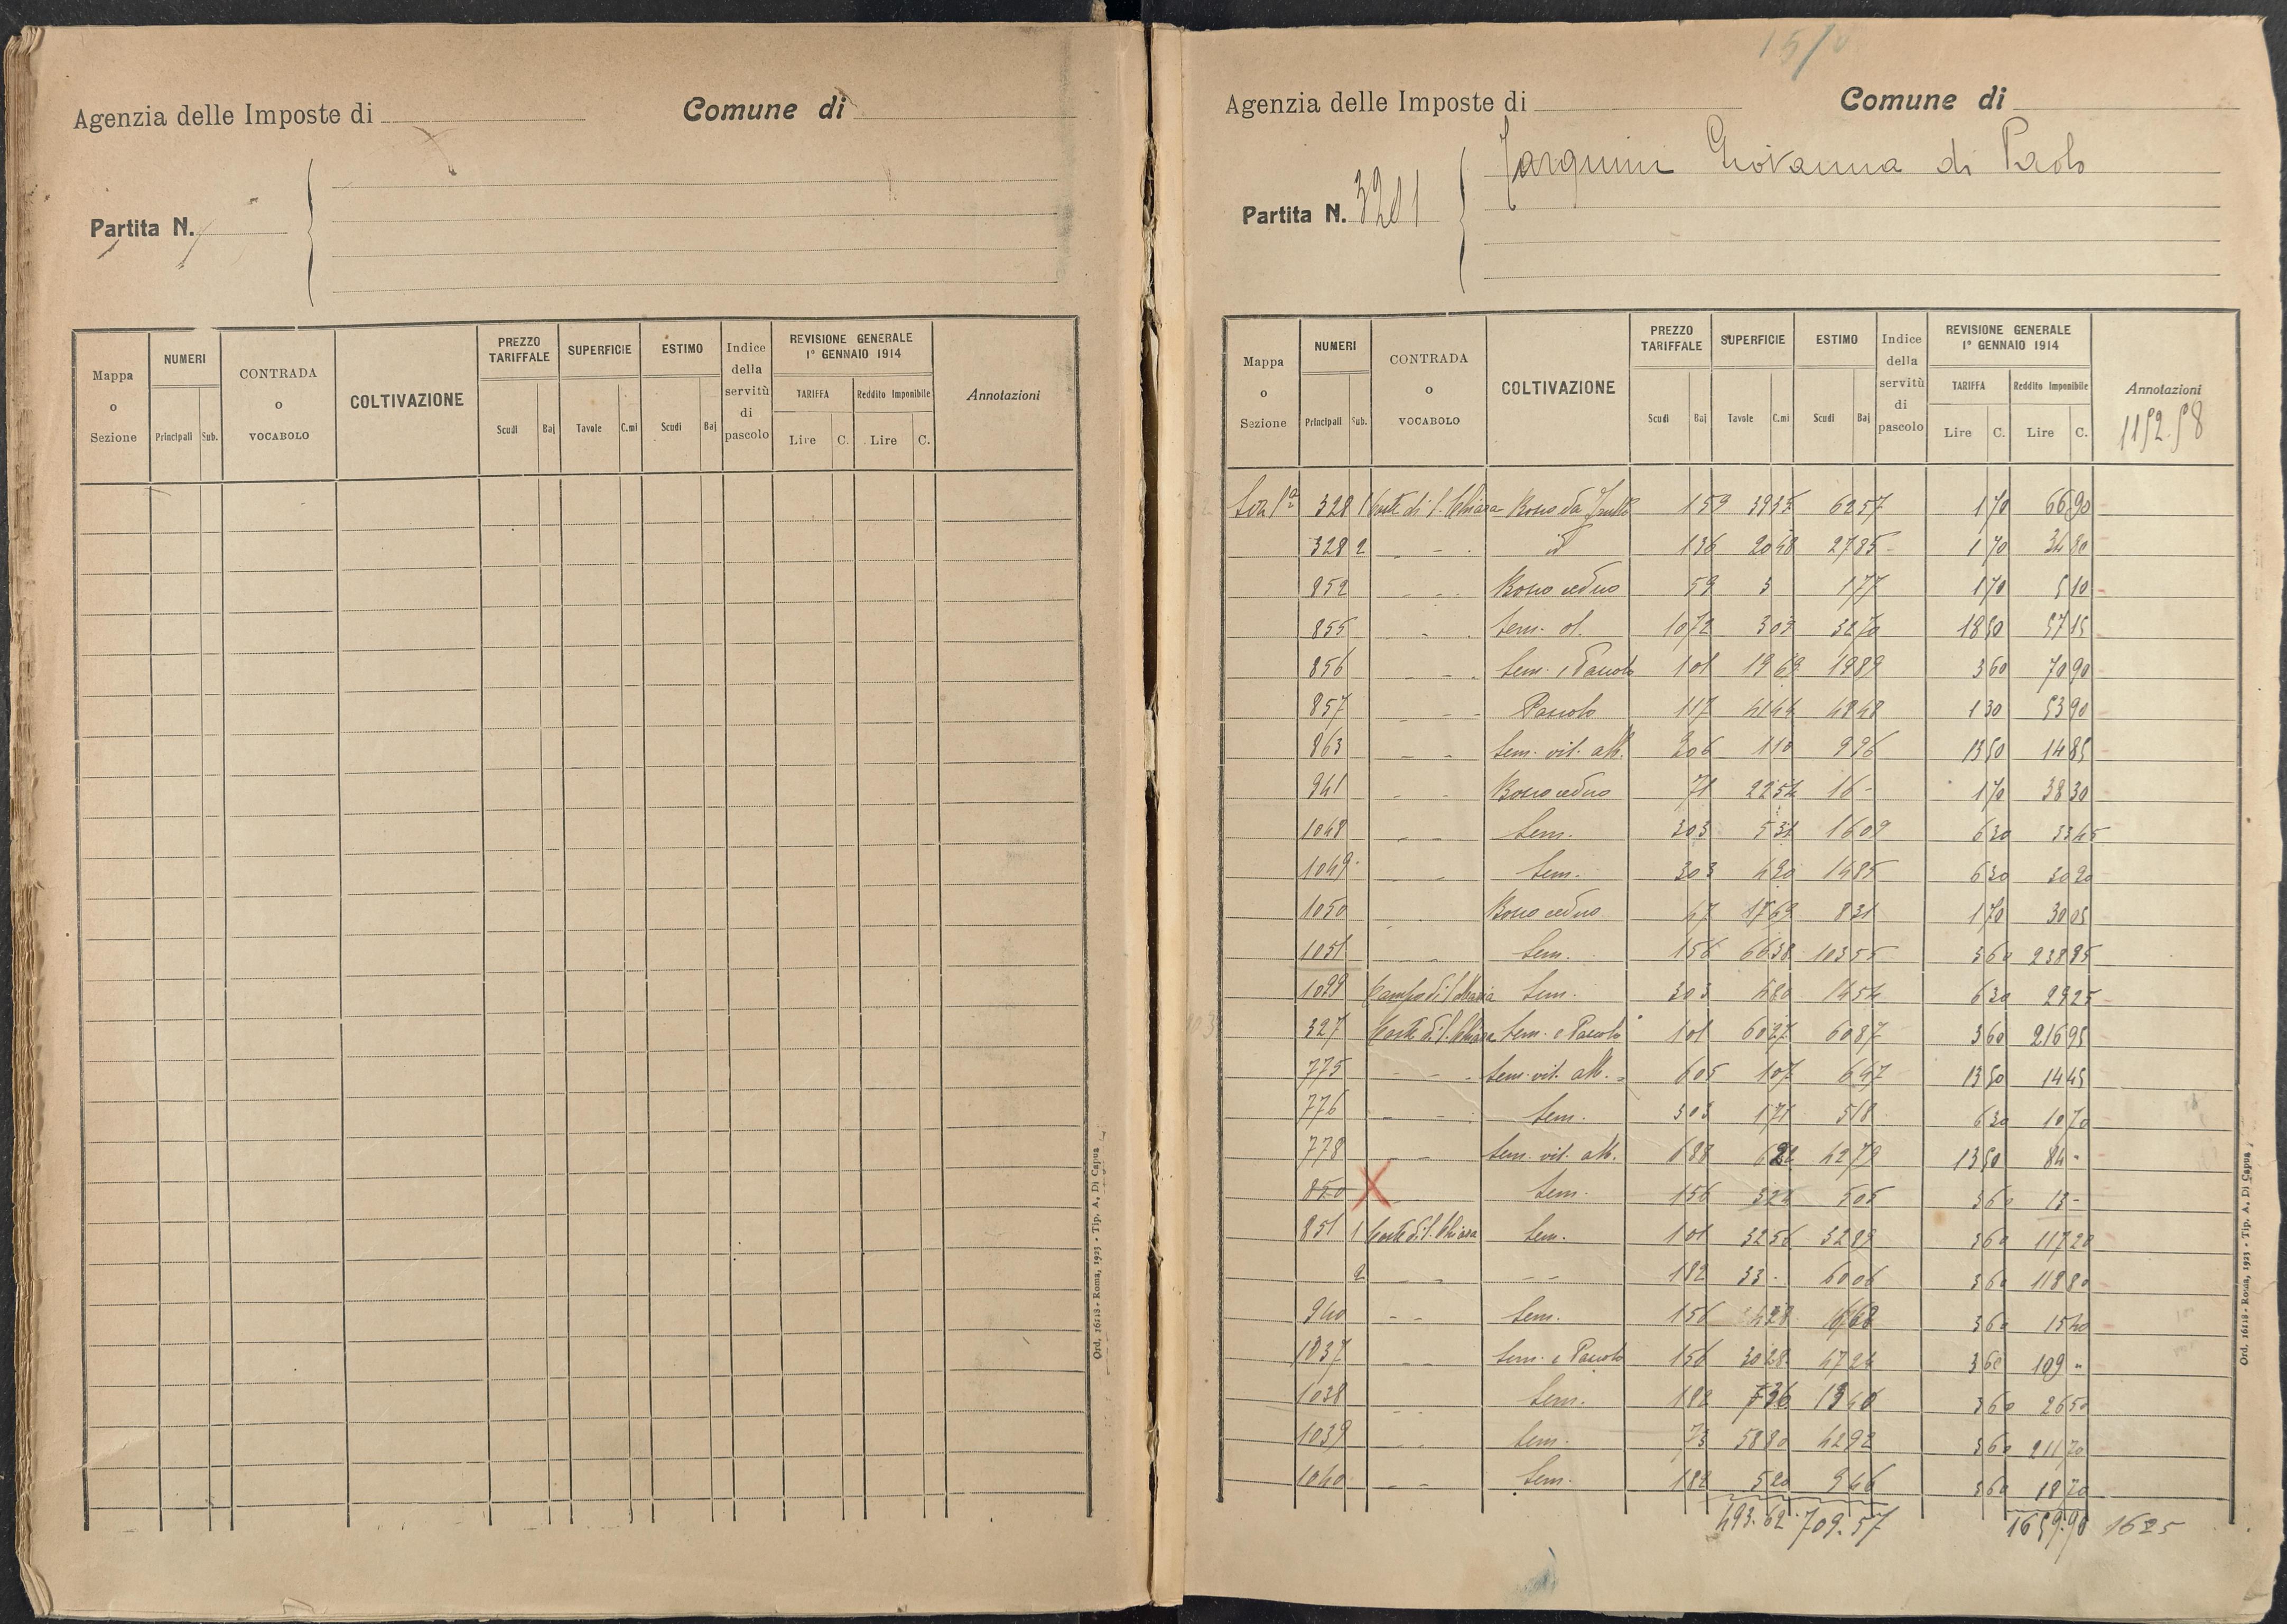 Agenzia delle Imposte di Comune di
Partita N.
Mappa o Sezione
NUMERI
Principali Sub.
CONTRADA o VOCABOLO
COLTIVAZIONE
PREZZO TARIFFALE
Scudi Baj
SUPERFICIE
Tavole C.mi
ESTIMO
Scudi Baj
Indice della servitù di pascolo
REVISIONE GENERALE
1° GENNAIO 1914
TARIFFA Reddito Imponibile
Lire C. Lire C.
Annotazioni
Ord. 16118 - Roma, 1923 - Tip. A. Di Capua
Agenzia delle Imposte di Comune di
Tarquini Giovanna di Paolo
Partita N. 3201
Mappa o Sezione
NUMERI
Principali Sub.
CONTRADA o VOCABOLO
COLTIVAZIONE
PREZZO TARIFFALE
Scudi Baj
SUPERFICIE
Tavole C.mi
ESTIMO
Scudi Baj
Indice della servitù di pascolo
REVISIONE GENERALE
1° GENNAIO 1914
TARIFFA Reddito Imponibile
Lire C. Lire C.
Annotazioni
1152.58
328 1 Bosco da frutto 1 59 39 35 62 57 1 70 66 90
328 2 - - id 1 36 20 48 27 85 1 70 34 80
852 - - Bosco ceduo 59 3 1 77 1 70 5 10
855 - - Sem. ol. 10 72 3 03 32 70 18 50 57 15
856 - - Sem. e Pascolo 1 01 19 69 19 89 3 60 70 90
857 - - Pascolo 1 17 41 44 48 48 1 30 53 90
863 - - Sem. vit. alb. 1 10 9 96 13 50 14 85
941 - - Bosco ceduo 71 22 54 16 - 1 70 38 30
1048 - - Sem. 3 03 5 31 16 09 6 30 33 45
1049 - - Sem. 3 03 4 90 14 85 6 30 30 90
1050 Bosco ceduo 47 17 69 8 31 1 70 30 05
1051 Sem. 1 56 66 38 103 55 3 60 238 95
1099 Sem. 3 03 4 80 14 54 6 30 29 25
327 Sem. e Pascolo 1 01 60 27 60 87 3 60 216 95
775 - - Sem. vit. alb. 6 05 1 07 6 47 13 50 14 45
776 - - Sem. 3 03 1 71 5 18 6 30 10 70
778 - - Sem. vit. alb. 6 88 6 22 42 79 13 50 84 -
850 X Sem. 1 56 3 24 5 05 3 60 13 -
851 1 Sem. 1 01 32 56 32 89 3 60 117 20
2 - - - - 1 82 33 - 60 06 3 60 118 80
940 - - Sem. 1 56 4 28 6 68 3 60 15 40
1037 - - Sem. e Pascolo 1 56 30 28 47 24 3 60 109 -
1038 - - Sem. 1 82 7 36 13 40 3 60 26 50
1039 - - Sem. 73 58 80 42 92 3 60 211 70
1040 - - Sem. 1 82 5 20 9 46 3 60 18 70
493.62 709.57 1659.90 1625
Ord. 16118 - Roma, 1923 - Tip. A. Di Capua